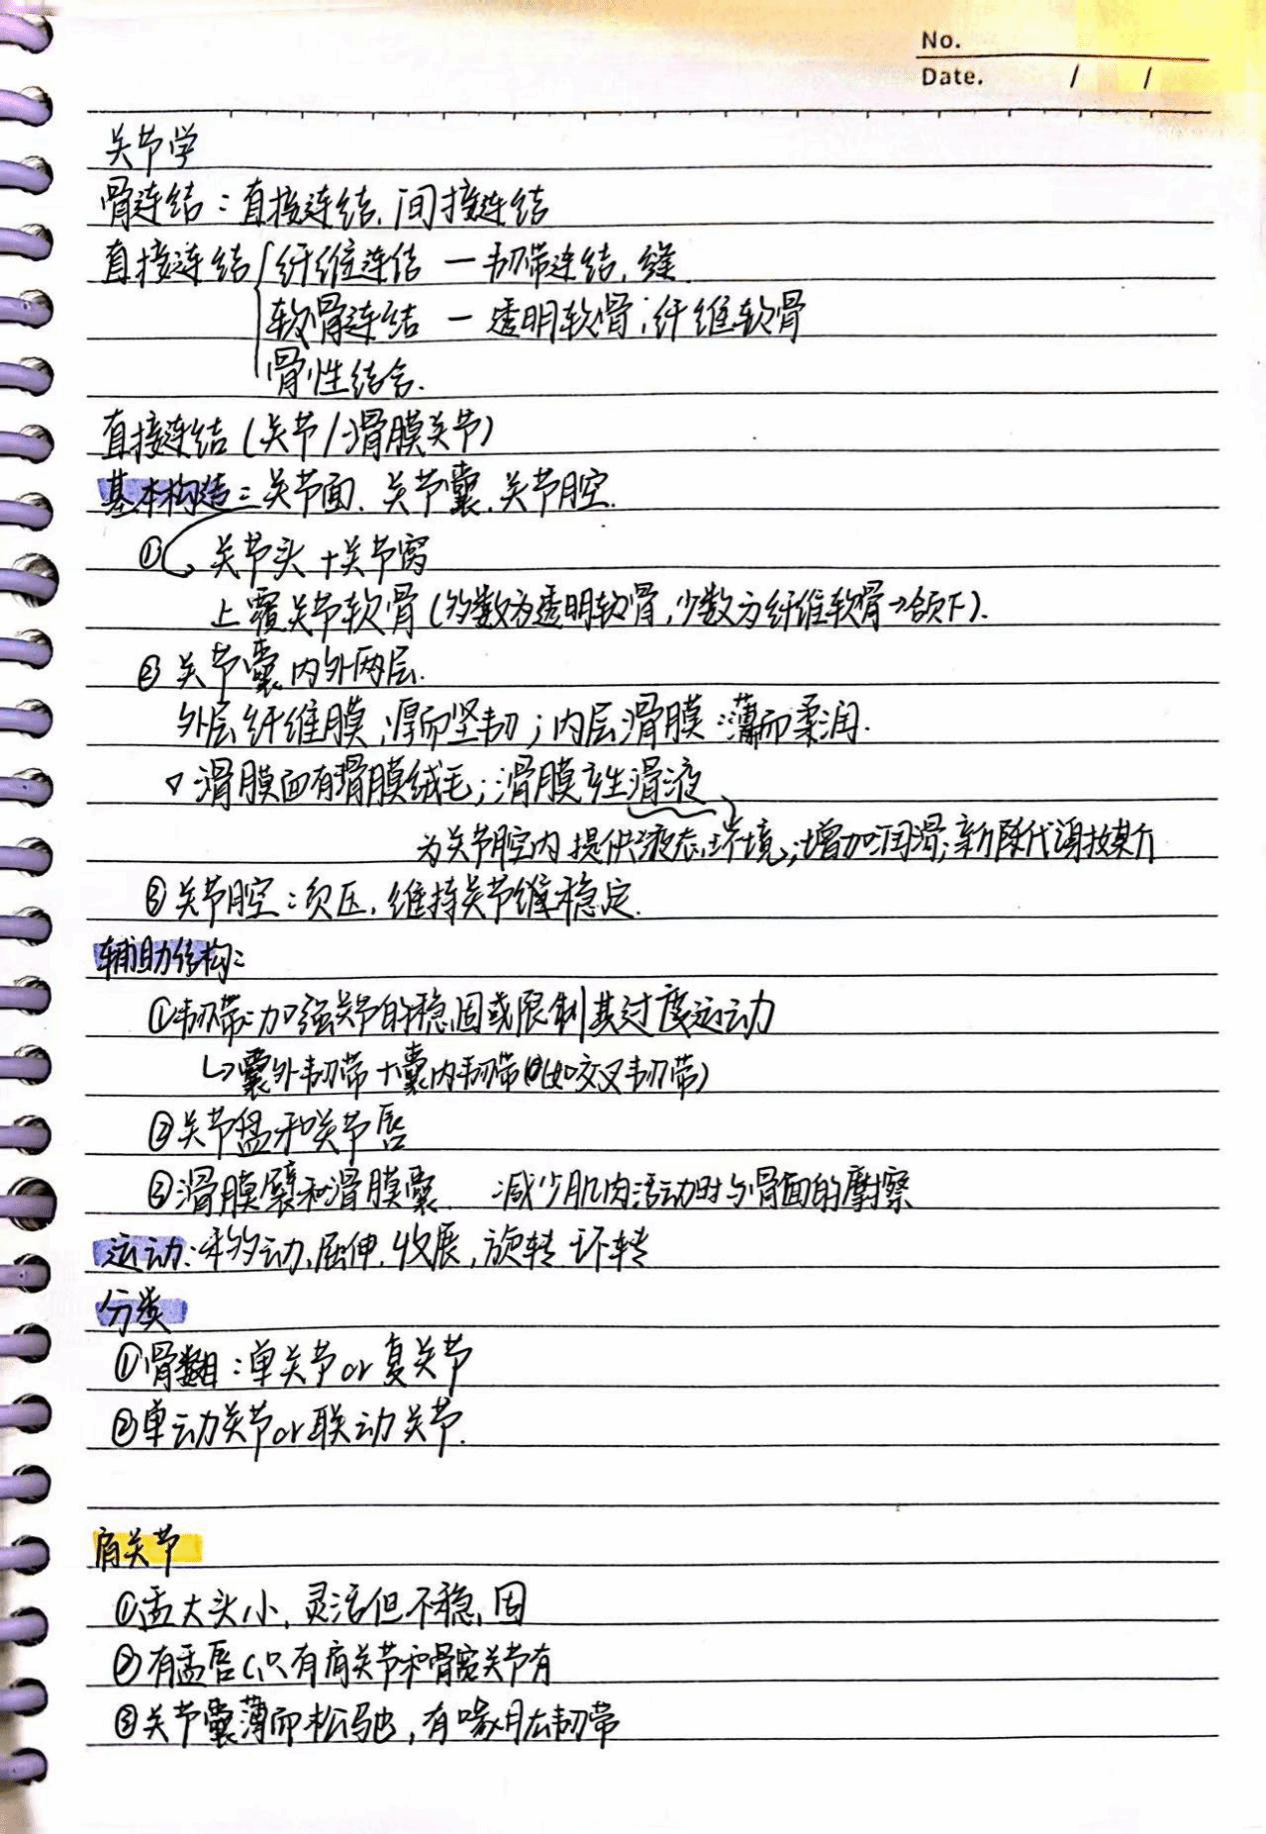 No.
Date. / /
关节学
骨连结：直接连结，间接连结
直接连结 纤维连结 — 韧带连结，缝
软骨连结 — 透明软骨；纤维软骨
骨性结合.
直接连结（关节/滑膜关节）
基本构造：关节面，关节囊，关节腔.
① 关节头+关节窝
上覆关节软骨（多数为透明软骨，少数为纤维软骨→颌下）.
② 关节囊 内外两层.
外层纤维膜，厚而坚韧；内层滑膜：薄而柔润.
▽ 滑膜面有滑膜绒毛；滑膜产生滑液
为关节腔内提供液态环境；增加润滑；新陈代谢媒介
③ 关节腔：负压，维持关节稳定.
辅助结构：
①韧带：加强关节的稳固或限制其过度运动
↳囊外韧带+囊内韧带（如交叉韧带）
②关节盘和关节唇
③滑膜襞和滑膜囊 减少肌肉活动时与骨面的摩擦
运动：移动，屈伸，收展，旋转 环转
分类
①骨数目：单关节or复关节
②单动关节or联动关节.
肩关节
①盂大头小，灵活但不稳固
②有盂唇（只有肩关节和髋关节有
③关节囊薄而松弛，有喙肱韧带